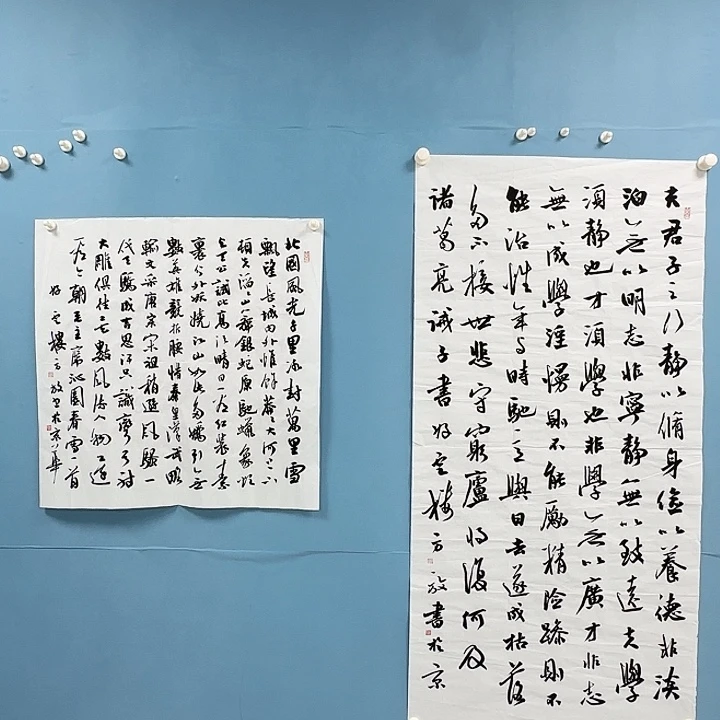 夫君子之行靜以脩身儉以養德非淡
泊無以明志非寧靜無以致遠夫學
須靜也才須學也非學無以廣才非志
無以成學淫慢則不能勵精險躁則不
能治性年與時馳意與日去遂成枯落
多不接世悲守窮廬將復何及
諸葛亮誡子書好雲樓方放書於京
北國風光千里冰封萬里雪
飄望長城內外惟餘莽莽大河上下
頓失滔滔山舞銀蛇原馳蠟象欲
與天公試比高須晴日看紅裝素
裹分外妖嬈江山如此多嬌引無
數英雄競折腰惜秦皇漢武略
輸文采唐宗宋祖稍遜風騷一
代天驕成吉思汗只識彎弓射
大雕俱往矣數風流人物還
看今朝毛主席沁園春雪一首
好雲樓方放書於京華